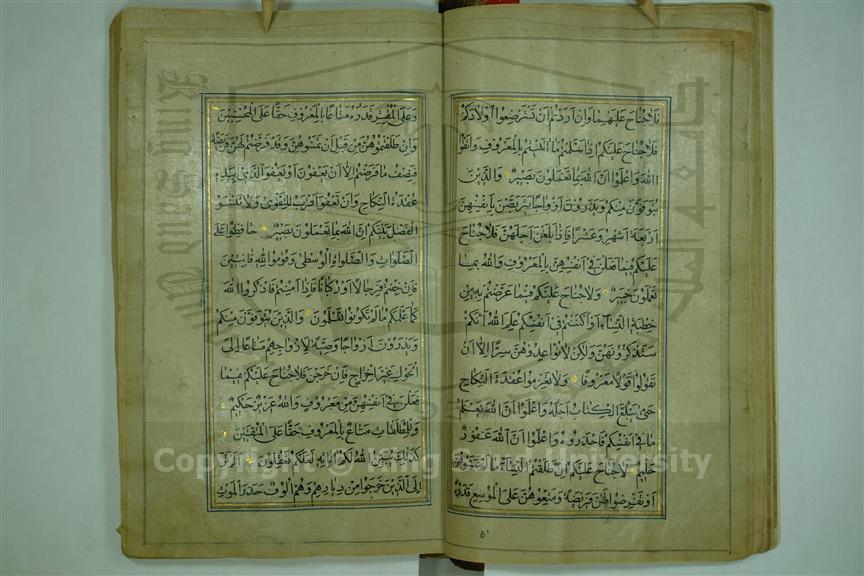 فلا جناح عليهما وان اردتم ان تسترضعوا اولادكم
فلا جناح عليكم اذا سلمتم ما اتيتم بالمعروف واتقوا
الله واعلموا ان الله بما تعملون بصير والذين
يتوفون منكم ويذرون ازواجا يتربصن بانفسهن
اربعة اشهر وعشرا فاذا بلغن اجلهن فلا جناح
عليكم فيما فعلن في انفسهن بالمعروف والله بما
تعملون خبير ولا جناح عليكم فيما عرضتم به من
خطبة النساء او اكننتم في انفسكم علم الله انكم
ستذكرونهن ولكن لا تواعدوهن سرا الا ان
تقولوا قولا معروفا ولا تعزموا عقدة النكاح
حتى يبلغ الكتاب اجله واعلموا ان الله يعلم
ما في انفسكم فاحذروه واعلموا ان الله غفور
حليم لا جناح عليكم ان طلقتم النساء ما لم تمسوهن
او تفرضوا لهن فريضة ومتعوهن على الموسع قدره
وعلى المقتر قدره متاعا بالمعروف حقا على المحسنين
وان طلقتموهن من قبل ان تمسوهن وقد فرضتم لهن فريضة
فنصف ما فرضتم الا ان يعفون او يعفوا الذي بيده
عقدة النكاح وان تعفوا اقرب للتقوى ولا تنسوا
الفضل بينكم ان الله بما تعملون بصير حافظوا على
الصلوات والصلوة الوسطى وقوموا لله قانتين
فان خفتم فرجالا او ركبانا فاذا امنتم فاذكروا الله
كما علمكم ما لم تكونوا تعلمون والذين يتوفون منكم
ويذرون ازواجا وصية لازواجهم متاعا الى
الحول غير اخراج فان خرجن فلا جناح عليكم فيما
فعلن في انفسهن من معروف والله عزيز حكيم
وللمطلقات متاع بالمعروف حقا على المتقين
كذلك يبين الله لكم اياته لعلكم تعقلون الم تر
الى الذين خرجوا من ديارهم وهم الوف حذر الموت
Copyright © King Saud University